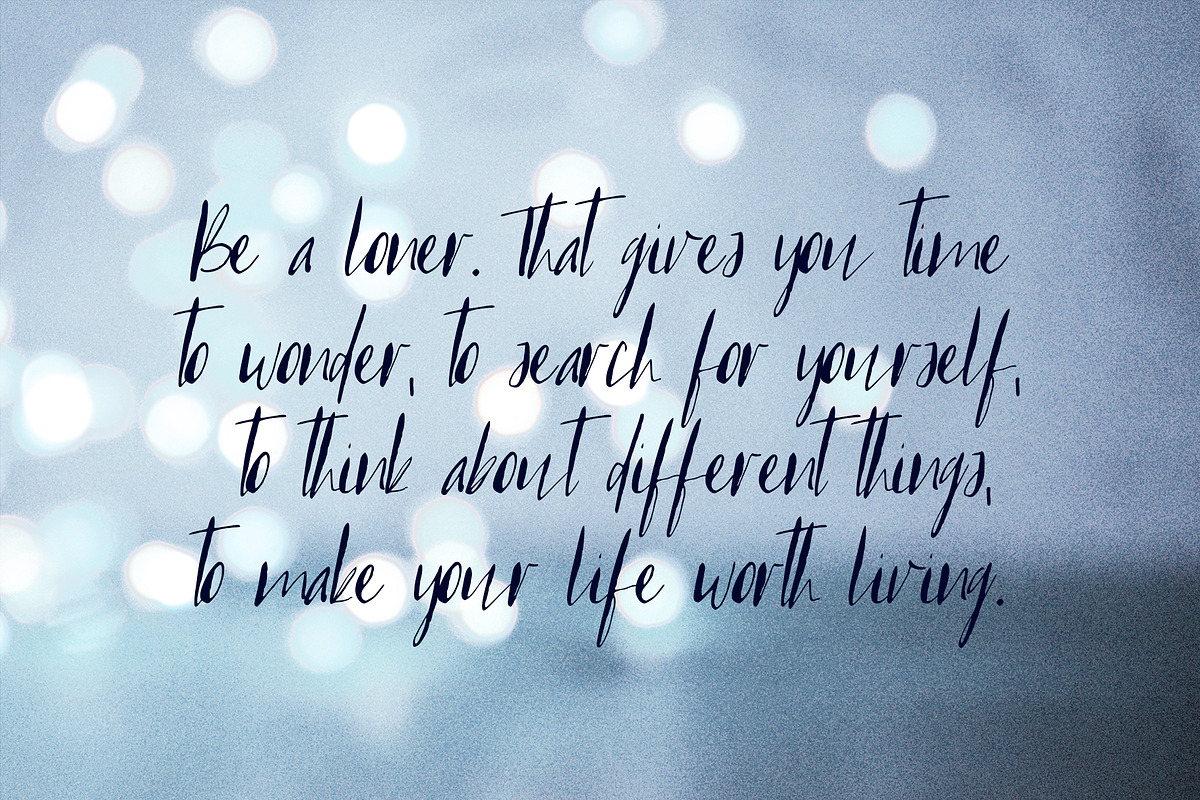 Be a loner. That gives you time
to wonder, to search for yourself,
to think about different things,
to make your life worth living.